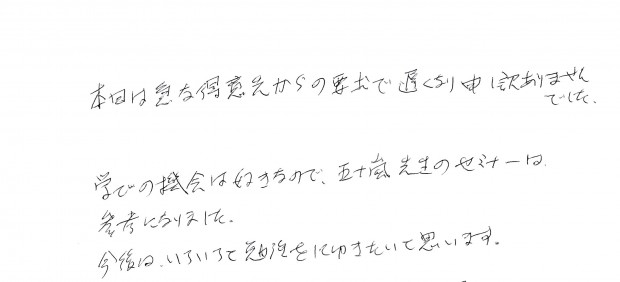 本日は急な得意先からの要求で遅くなり申し訳ありません
でした。
学びの機会は好きなので、五十嵐先生のセミナーは
参考になりました。
今後は、いろいろと勉強をして行きたいと思います。